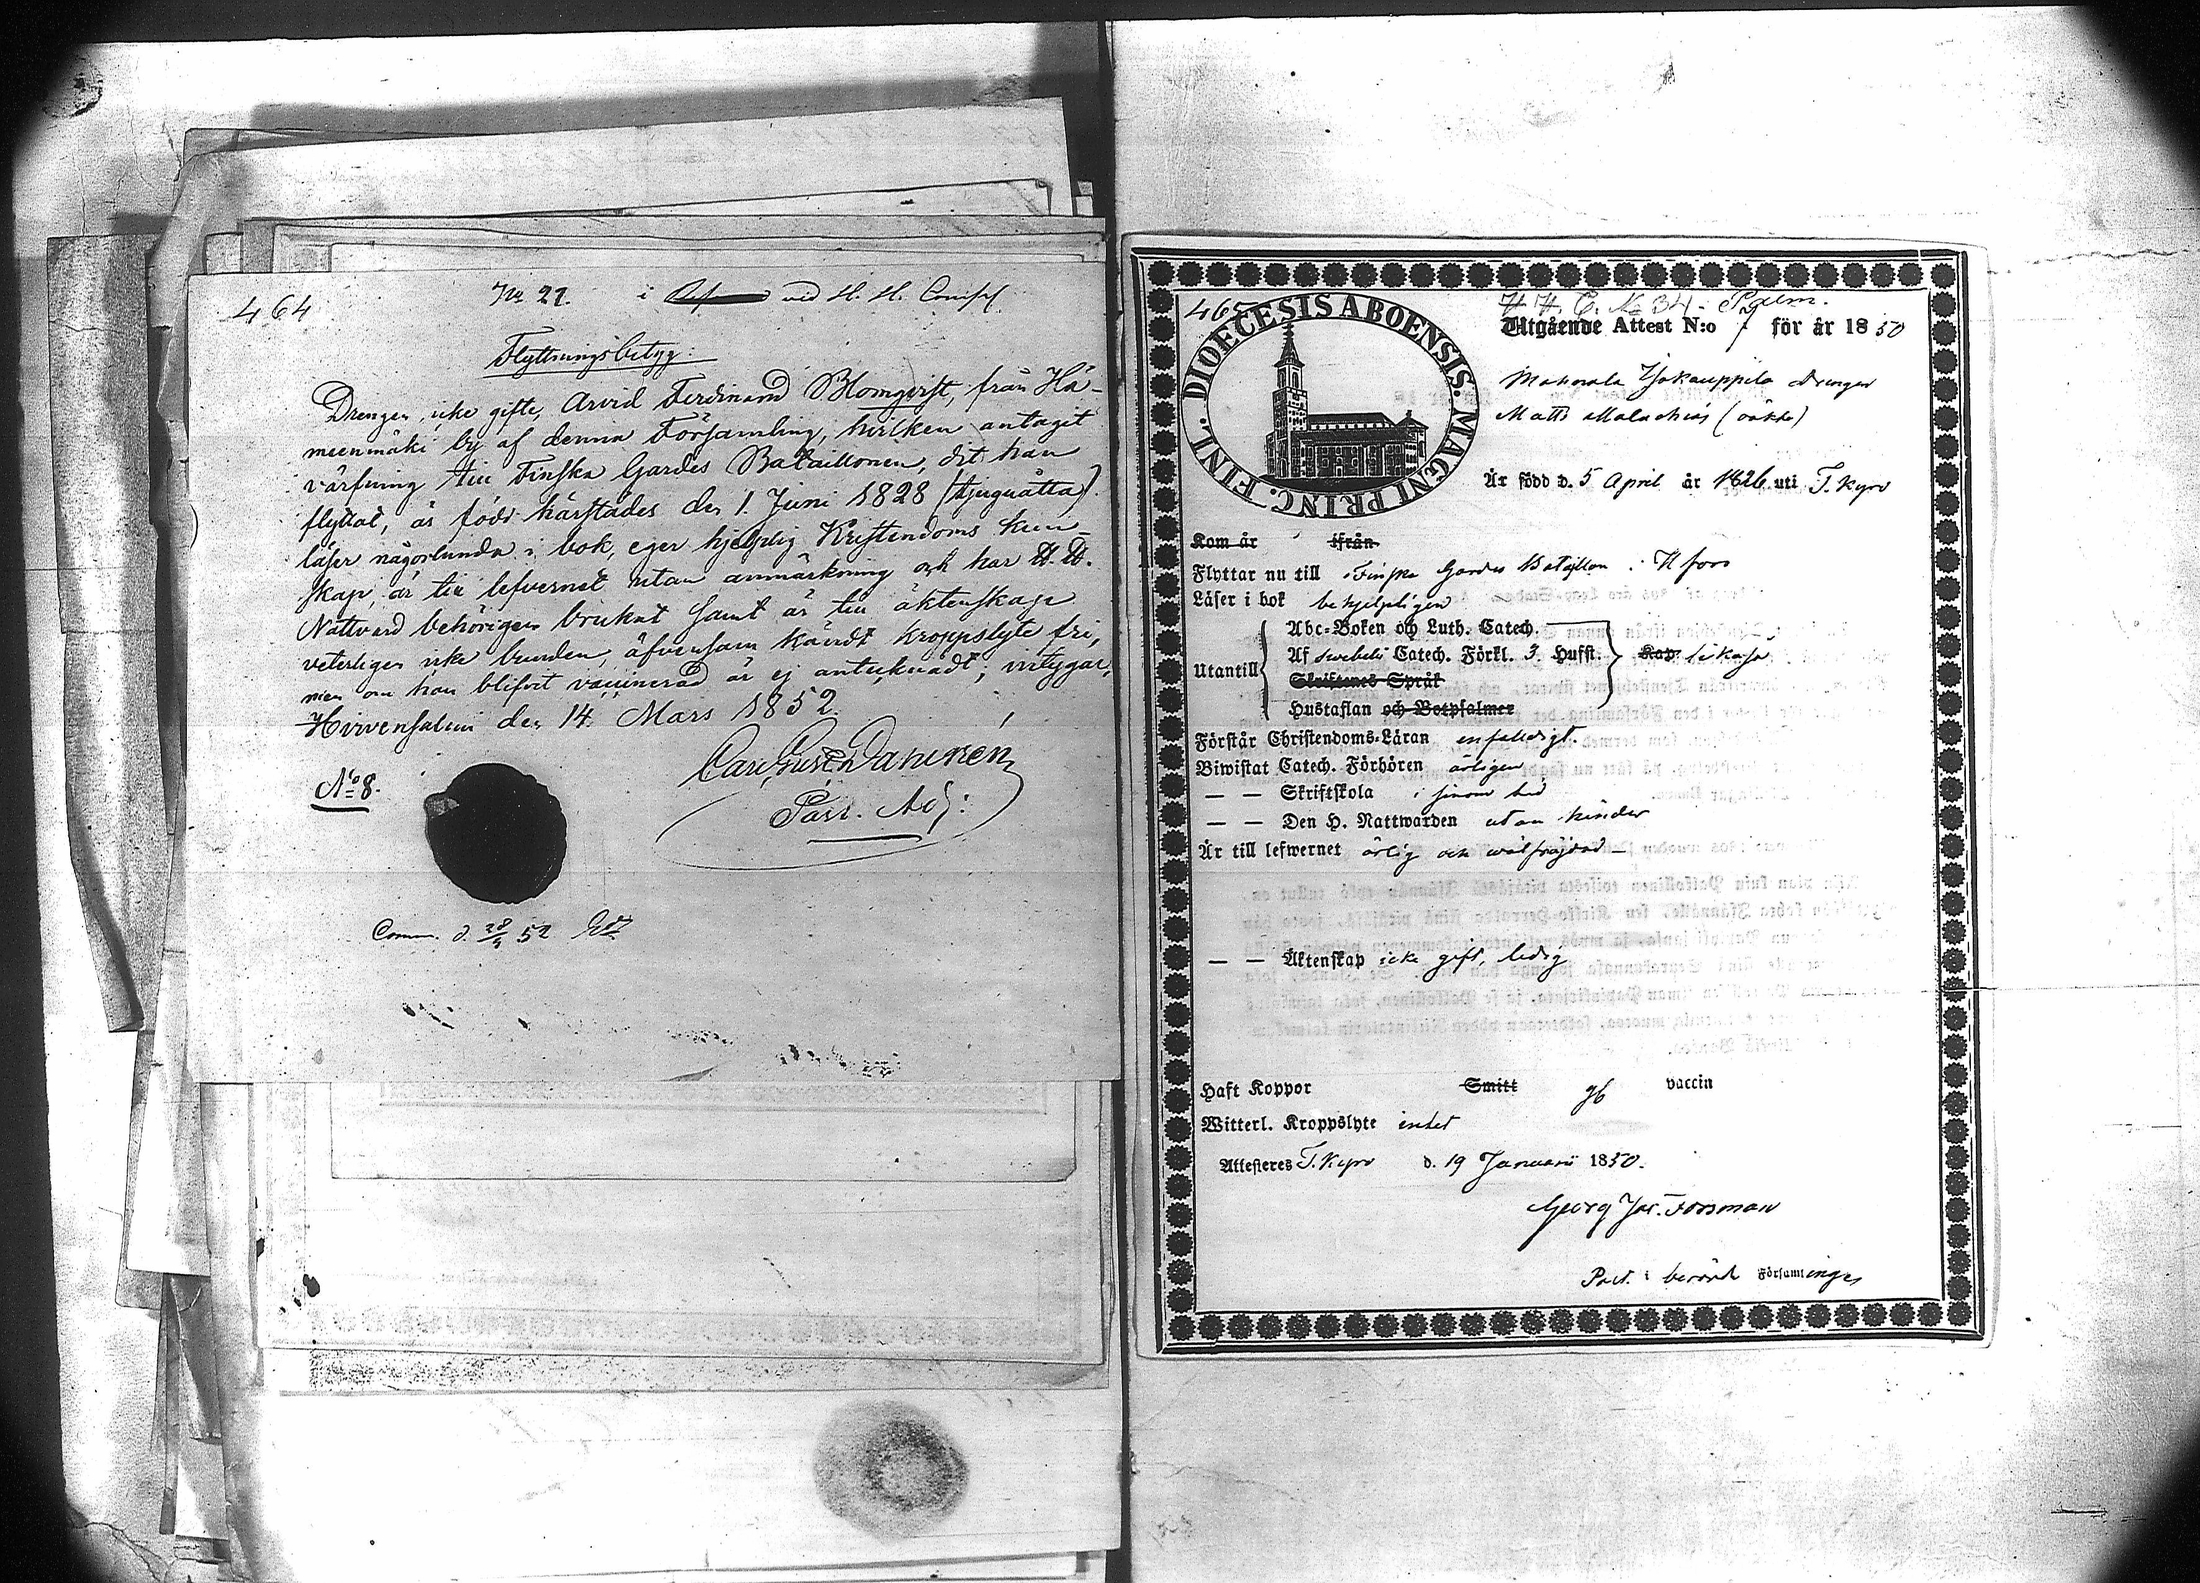 464
No 27. i ved H. H. Comp.
Flyttningsbetyg:
Drengen, icke gifte, Arvid Ferdinand Blomqvist, från Hä-
meenmäki by af denna Församling, hvilken antagit
värfning till Finska Gardes Bataillonen, dit han
flyttat, är född härstädes den 1. Juni 1828 (tjuguåtta).
läser någorlunda i bok, eger hjelplig Kristendoms kun-
skap, är till lefvernet utan anmärkning och har H. H.
Nattvard behörigen brukat samt är till äktenskap
veterligen icke bunden, äfvensom kändt kroppslyte fri,
men om han blifvit vaccinerad är ej antecknadt; intygar,
Hirvensalmi den 14 Mars 1852.
Carl Gust. Dannen
Past. Adj:
No 8.
Comm. d. 28/4 52
465
DIOECESIS ABOENSIS. MAGNI PRINC. FINL.
H. H. C. No 34. Palm.
Utgående Attest N:o 7 för år 1850
Makorala Yjokauppila Drengen
Matts Malachias
Är född d. 5 April år 1826 uti T. Kyro
Kom år ifrån
Flyttar nu till Finska Gardes Bataljon i Hfors
Läser i bok behjelpligen
Abc-Boken och Luth. Catech.
Utantill Af Swebeli Catech. Förkl. 3. Hufst. Kap. likaså
Skriftenes Språk
Hustaflan och Botpsalmer
Förstår Christendoms-Läran enfalldigt.
Biwistat Catech. Förhören årligen
— — Skriftskola i sinom tid
— — Den H. Nattwarden utan hinder
Är till lefwernet ärlig och wälfräjdad —
— — Äktenskap icke gift, ledig
Haft Koppor Smitt gb vaccin
Witterl. Kroppslyte intet
Attesteres T. Kyro d. 19 Januarii 1850.
Georg Jac. Forsman
Past. i berörde Församlingen